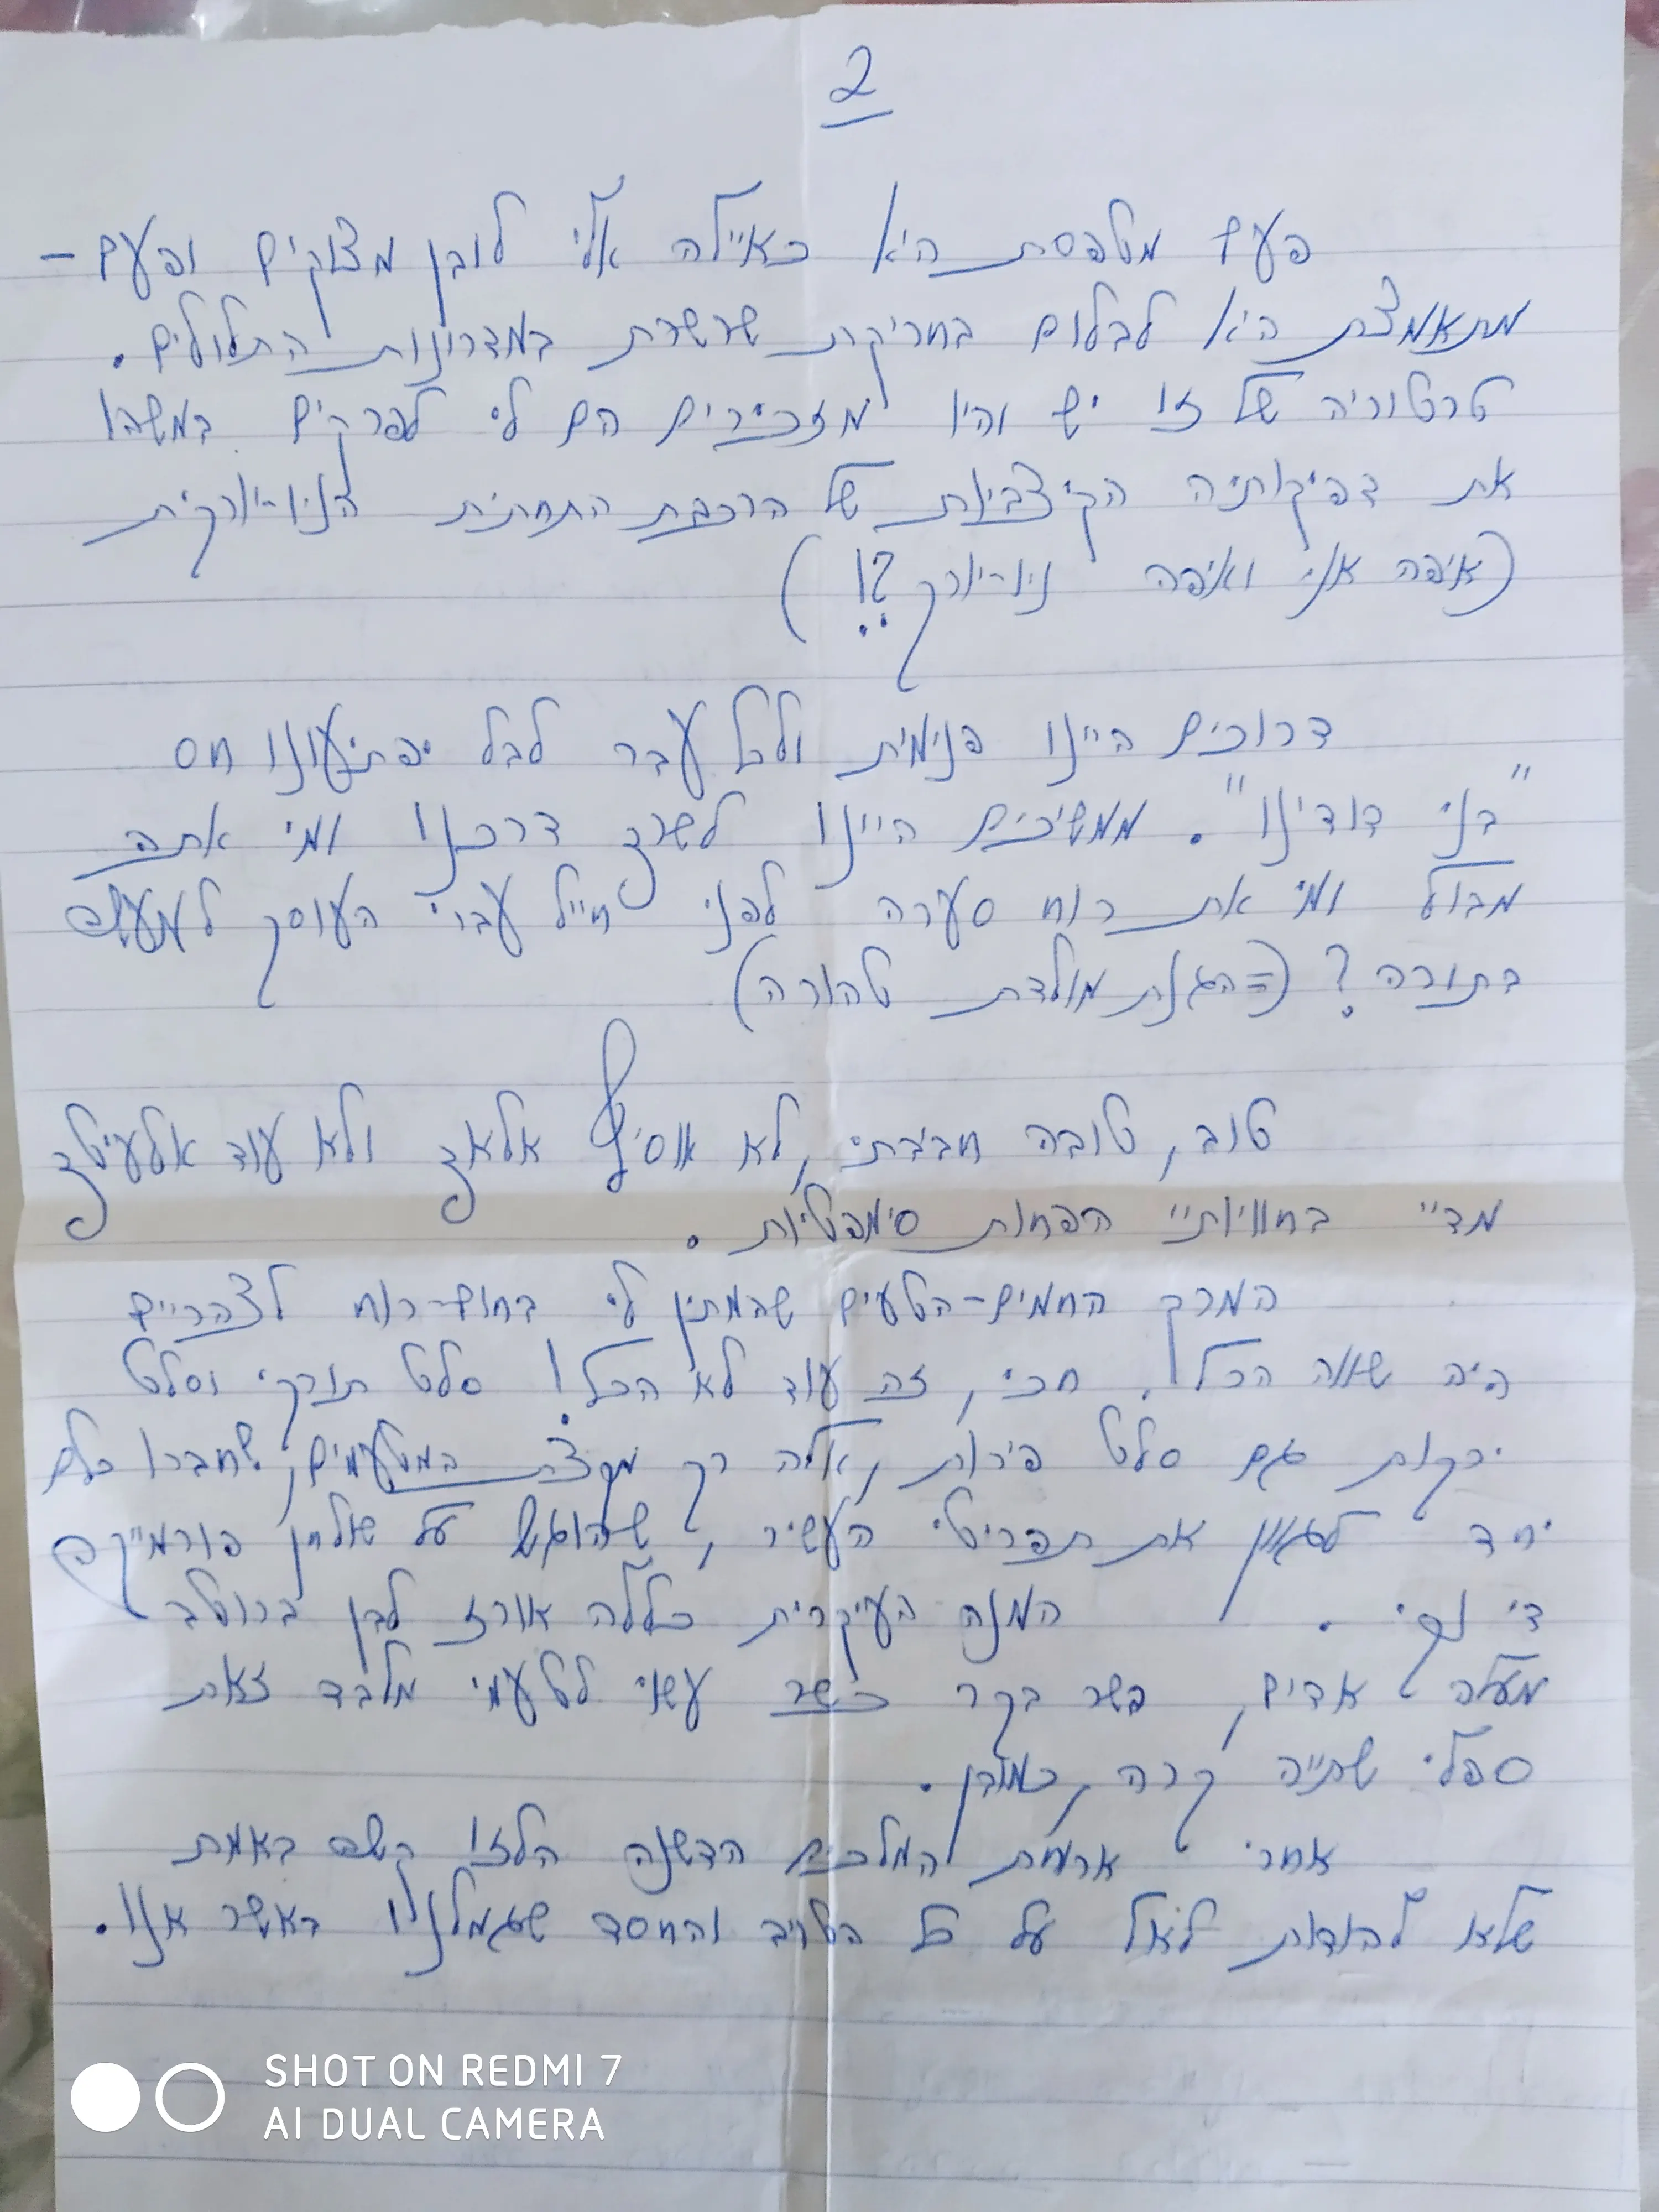 2
פעם מטפסת היא כאיילה אלי לובן מצוקים ופעם -
מתאמצת היא לבלום בחריקת שרשרת במדרונות התלולים.
טרטוריה של זו יש והיו מזכירים הם לי לפרקים במשהו
את דפיקותיה הקיצביות של הרכבת התחתית הניו-יורקית
(איפה אני ואיפה ניו-יורק?!)
דרוכים היינו פנימית ולכל עבר לבל יפתיעונו חס
"בני דודינו". ממשיכים היינו לשרך דרכנו ומי אתה
מבול ומי את רוח סערה לפני חייל עברי העוסק למעשה
בתורה? (=הגנת מולדת טהורה)
טוב, טובה חביבתי, לא אוסיף אלאץ ולא עוד אלעיטך
מדיי בחוויותיי הפחות סימפטיות.
המרק החמים-הטעים שהמתין לי בחום-רוח לצהריים
היה שווה הכל! חכי, זה עוד לא הכל! סלט תורקי וסלט
ירקות גם סלט פירות, אלה רק מקצת המטעמים, שחברו כולם
יחד לגוון את תפריטי העשיר, שהוגש על שולחן פורמייקה
די נקי. המנה העיקרית כללה אורז לבן ברוטב
מעלה אדים, בשר בקר כשר עשוי לטעמי מלבד זאת
ספלי שתייה קרה, כמובן.
אחרי ארוחת המלכים הדשנה הלזו קשה באמת
שלא להודות לאל על כל הטוב והחסד שגמלנו באשר אנו.
SHOT ON REDMI 7
AI DUAL CAMERA